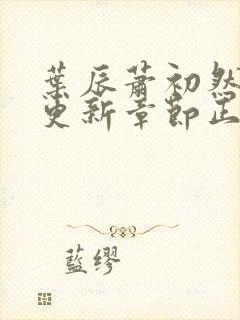 葉辰蕭初然
更新章節正
藍繆